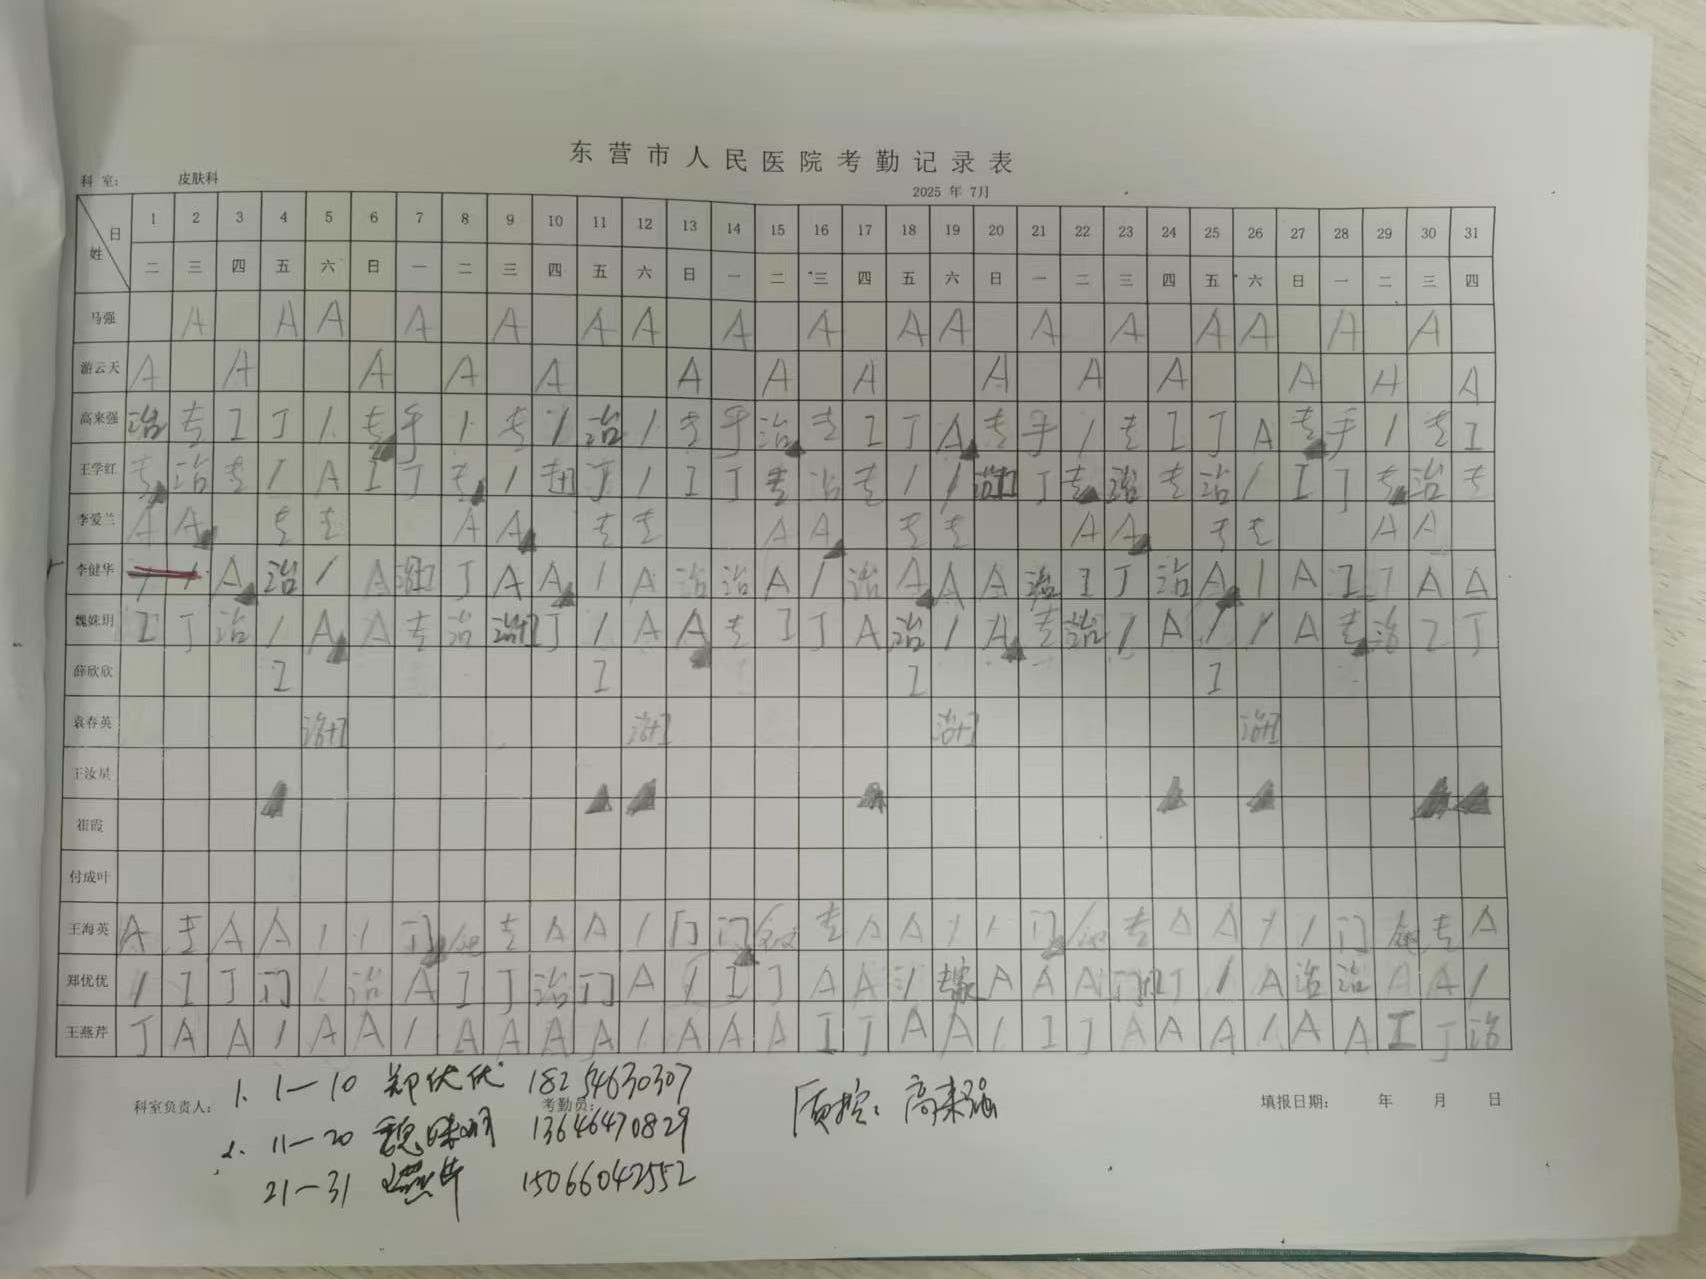 东营市人民医院考勤记录表
科室： 皮肤科 2025 年 7月
日 1 2 3 4 5 6 7 8 9 10 11 12 13 14 15 16 17 18 19 20 21 22 23 24 25 26 27 28 29 30 31
姓 二 三 四 五 六 日 一 二 三 四 五 六 日 一 二 三 四 五 六 日 一 二 三 四 五 六 日 一 二 三 四
马强 A A A A A A A A A A A A A A A A A A
游云天 A A A A A A A A A A A A A
高来强 治 专 工 丁 / 专 手 / 专 / 治 / 专 手 治 专 工 丁 A 专 手 / 专 工 丁 A 专 手 / 专 工
王学红 专 治 专 / A 工 丁 专 / 丁 / 工 丁 专 治 专 / / 丁 专 治 专 治 / 工 丁 专 治 专
李爱兰 A A 专 专 A A 专 专 A A 专 专 A A 专 专 A A
李健华 / / A 治 / A 丁 A A / A 治 治 A / 治 A A A 治 工 丁 治 A / A 工 丁 A A
魏姝玥 工 丁 治 / A A 专 治 治+工 丁 / A A 专 工 丁 A 治 / A 专 治 / A / / A 专 治 工 丁
薛欣欣 工 工 工 工
袁春英 治+工 治+工 治+工 治+工
王汝星
崔霞
付成叶
王海英 A 专 A A / / 门 专 A A / 门 门 专 A A / / 门 专 A A / / 门 专 A
郑优优 / 工 丁 门 / 治 A 工 丁 治 门 A / 工 丁 A A / A A A 丁 / A 治 治 A A /
王燕芹 丁 A A / A A / A A A A / A A A 工 丁 A A / 工 丁 A A A / A A 工 丁 治
科室负责人： 考勤员： 填报日期： 年 月 日
1. 1—10 郑优优 18254630307
质控：高来强
2. 11—20 魏姝玥 13646470829
21—31 王燕芹 15066042552